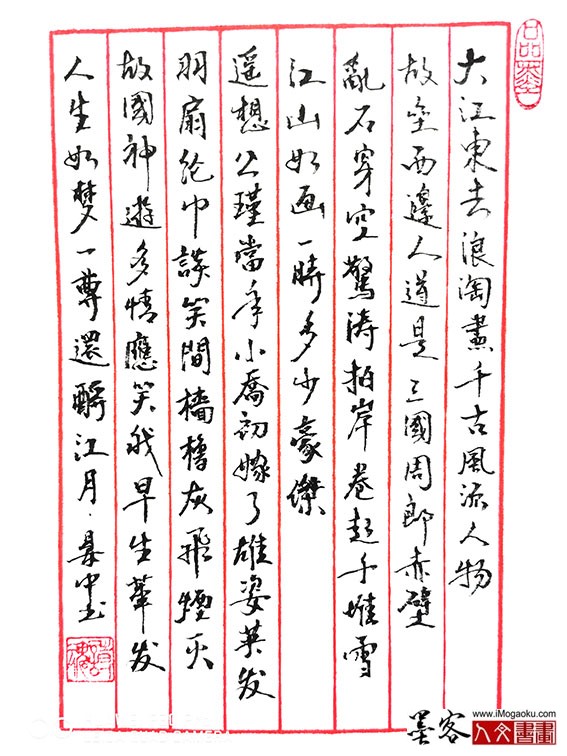 大江東去浪淘盡千古風流人物
故壘西邊人道是三國周郎赤壁
亂石穿空驚涛拍岸卷起千堆雪
江山如画一時多少豪傑
遥想公瑾當年小喬初嫁了雄姿英发
羽扇纶巾談笑間檣櫓灰飛煙灭
故國神遊多情應笑我早生華发
人生如梦一尊還酹江月
www.iMogaoku.com
墨客
人文書畫